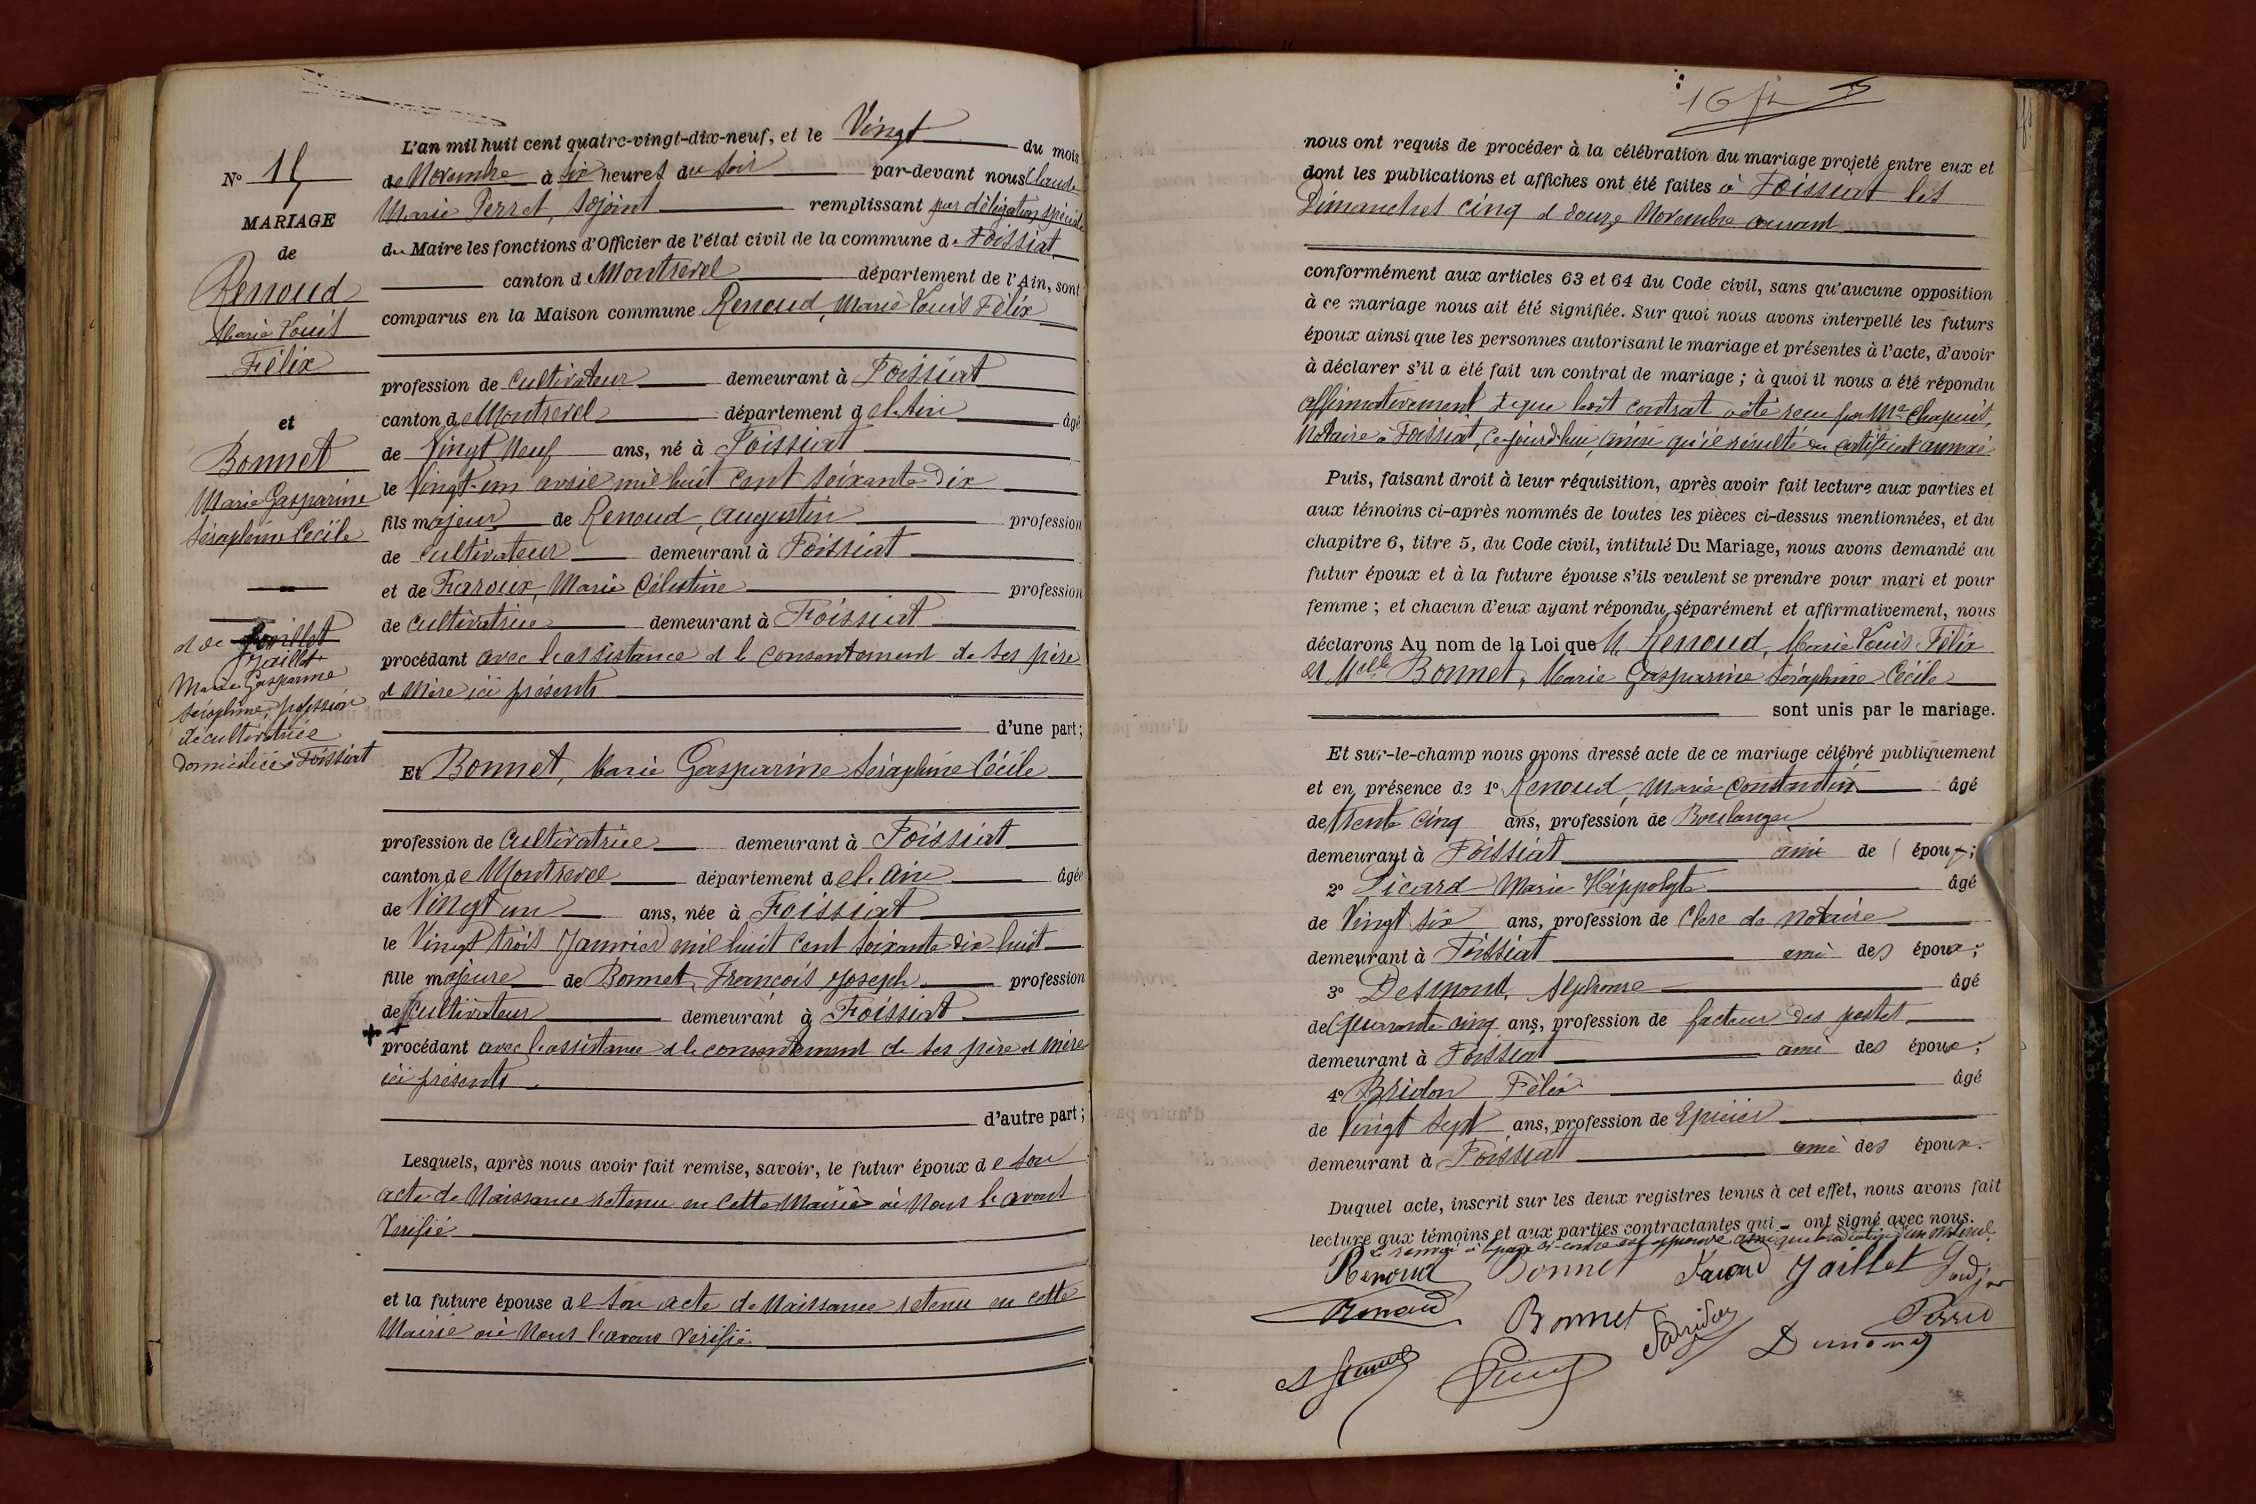 L'an mil huit cent quatre-vingt-dix-neuf, et le Vingt du mois
de Novembre à six heures du soir par-devant nous Claude
Marie Perret, adjoint remplissant par délégation spéciale
du Maire les fonctions d'Officier de l'état civil de la commune de Foissiat,
canton de Montrevel département de l'Ain, sont
comparus en la Maison commune Renoud, Marie Louis Félix
profession de cultivateur demeurant à Foissiat
canton de Montrevel département de l'Ain âgé
de Vingt Neuf ans, né à Foissiat
le Vingt-un avril mil huit cent soixante Dix
fils majeur de Renoud, Augustin profession
de cultivateur demeurant à Foissiat
et de Faroux, Marie Célestine profession
de cultivatrice demeurant à Foissiat
procédant avec l'assistance et le consentement de ses père
et mère ici présents
d'une part;
Et Bonnet, Marie Gasparine Séraphine Cécile
profession de cultivatrice demeurant à Foissiat
canton de Montrevel département de l'Ain âgée
de Vingt un ans, née à Foissiat
le Vingt trois Janvier mil huit cent soixante dix huit
fille majeure de Bonnet, François Joseph profession
de cultivateur demeurant à Foissiat
+ procédant avec l'assistance et le consentement de ses père et mère
ici présents
d'autre part;
Lesquels, après nous avoir fait remise, savoir, le futur époux de son
acte de Naissance retenu en cette Mairie où Nous l'avons
Vérifié
et la future épouse de son acte de Naissance retenu en cette
Mairie où Nous l'avons vérifié.
N°
MARIAGE
de
Renoud
Marie Louis
Félix
et
Bonnet
Marie Gasparine
Séraphine Cécile
et de
Jaillet
Marie Gasparine
Séraphine, profession
de cultivatrice
domiciliée à Foissiat
nous ont requis de procéder à la célébration du mariage projeté entre eux et
dont les publications et affiches ont été faites à Foissiat les
Dimanches cinq et douze Novembre courant
conformément aux articles 63 et 64 du Code civil, sans qu'aucune opposition
à ce mariage nous ait été signifiée. Sur quoi nous avons interpellé les futurs
époux ainsi que les personnes autorisant le mariage et présentes à l'acte, d'avoir
à déclarer s'il a été fait un contrat de mariage ; à quoi il nous a été répondu
affirmativement et que ledit contrat a été reçu par Me Chapuis,
Notaire à Foissiat, ce jourd'hui, ainsi qu'il résulte du certificat annexé.
Puis, faisant droit à leur réquisition, après avoir fait lecture aux parties et
aux témoins ci-après nommés de toutes les pièces ci-dessus mentionnées, et du
chapitre 6, titre 5, du Code civil, intitulé Du Mariage, nous avons demandé au
futur époux et à la future épouse s'ils veulent se prendre pour mari et pour
femme ; et chacun d'eux ayant répondu séparément et affirmativement, nous
déclarons Au nom de la Loi que M. Renoud, Marie Louis Félix
et Melle Bonnet, Marie Gasparine Séraphine Cécile
sont unis par le mariage.
Et sur-le-champ nous avons dressé acte de ce mariage célébré publiquement
et en présence de 1° Renoud, Marie Constantin âgé
de trente cinq ans, profession de Boulanger
demeurant à Foissiat ami de l époux;
2° Picard Marie Hippolyte âgé
de Vingt six ans, profession de Clerc de notaire
demeurant à Foissiat ami des époux;
3° Desmond, Alphonse âgé
de quarante cinq ans, profession de facteur des postes
demeurant à Foissiat ami des époux;
4° Bridon Félix âgé
de Vingt sept ans, profession de Epicier
demeurant à Foissiat ami des époux.
Duquel acte, inscrit sur les deux registres tenus à cet effet, nous avons fait
lecture aux témoins et aux parties contractantes qui ont signé avec nous.
Renoud Bonnet Jaillet
Renoud Bonnet Perret